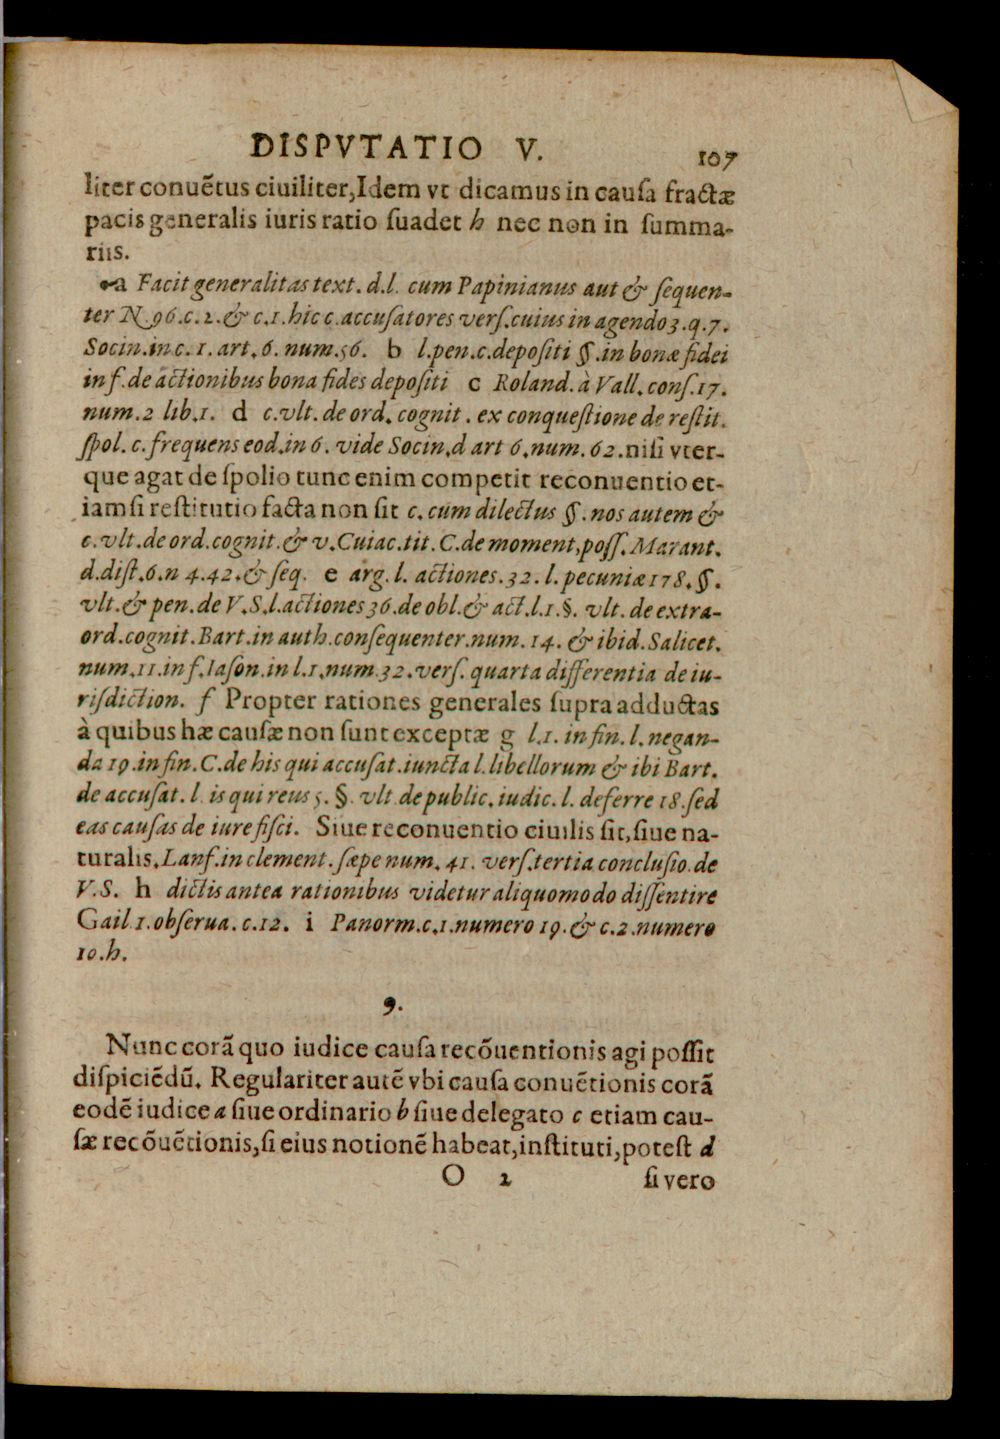 DISPVTATIO V. 107
liter conuẽtus ciuiliter, Idem vt dicamus in cauſa fractæ
pacis generalis iuris ratio ſuadet h nec non in ſumma-
riis.
a Facit generalitas text. d.l. cum Papinianus aut & ſequen-
ter N. 96.c.2.& c.1.hic c.accuſatores verſ.cuius in agendo 3.q.7.
Socin.in c. 1. art. 6. num.56. b l.pen.c.depoſiti §.in bonæ fidei
inf.de actionibus bona fides depoſiti c Roland. à Vall. conſ.17.
num.2 lib.1. d c.vlt. de ord. cognit. ex conqueſtione de reſtit.
ſpol. c.frequens eod.in 6. vide Socin.d art 6.num. 62.niſi vter-
que agat de ſpolio tunc enim competit reconuentio et-
iamſi reſtitutio facta non ſit c. cum dilectus §. nos autem &
c.vlt.de ord.cognit.& v.Cuiac.tit. C.de moment,poſſ. Marant.
d.diſt.6.n 4.42.& ſeq. e arg. l. actiones.32. l.pecuniæ 178. §.
vlt.& pen.de V.S.l.actiones 36.de obl.& act.l.1.§. vlt. de extra-
ord.cognit.Bart.in auth.conſequenter.num. 14. & ibid.Salicet.
num.11.inf.Iaſon.in l.1.num.32.verſ.quarta differentia de iu-
riſdiction. f Propter rationes generales ſupra adductas
à quibus hæ cauſæ non ſunt exceptæ g l.1. in fin. l.negan-
da 19.in fin.C.de his qui accuſat.iuncta l.libellorum & ibi Bart.
de accuſat. l. is qui reus 5. §. vlt de public. iudic. l. deferre 18.ſed
eas cauſas de iure fiſci. Siue reconuentio ciuilis ſit, ſiue na-
turalis. Lanf.in clement. ſæpe num. 41. verſ.tertia concluſio.de
V.S. h dictis antea rationibus videtur aliquomodo diſſentire
Gail 1.obſerua.c.12. i Panorm.c.1.numero 19.& c.2.numero
10.h.
9.
Nunc corã quo iudice cauſa recõuentionis agi poſſit
diſpiciẽdũ. Regulariter autẽ vbi cauſa conuẽtionis corã
eodẽ iudice a ſiue ordinario b ſiue delegato c etiam cau-
ſæ recõuẽtionis, ſi eius notionẽ habeat, inſtituti, poteſt d
O 2 ſi vero